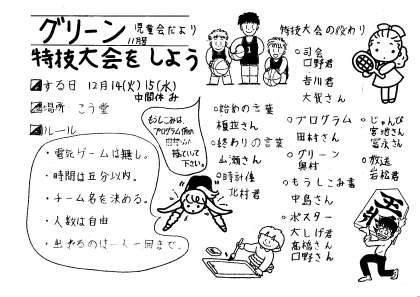 グリーン
児童会だより
11月号
特技大会をしよう
する日 12月14(火)15(水)
中間休み
場所 こう堂
ルール
・電気ゲームは無し。
・時間は五分以内。
・チーム名を決める。
・人数は自由
・出れるのは一人一回まで。
もうしこみは、
プログラム係の
捨ていて
下さい。
特技大会の役わり
○司会
口野君
吉川君
大賀さん
○始めの言葉
植並さん
○終わりの言葉
山瀬さん
○時計係
北村君
○プログラム
田村さん
○グリーン
奥村
○もうしこみ書
中島さん
○ポスター
大しげ君
高橋さん
口野さん
○じゅんび
宮地さん
富永さん
○放送
岩松君